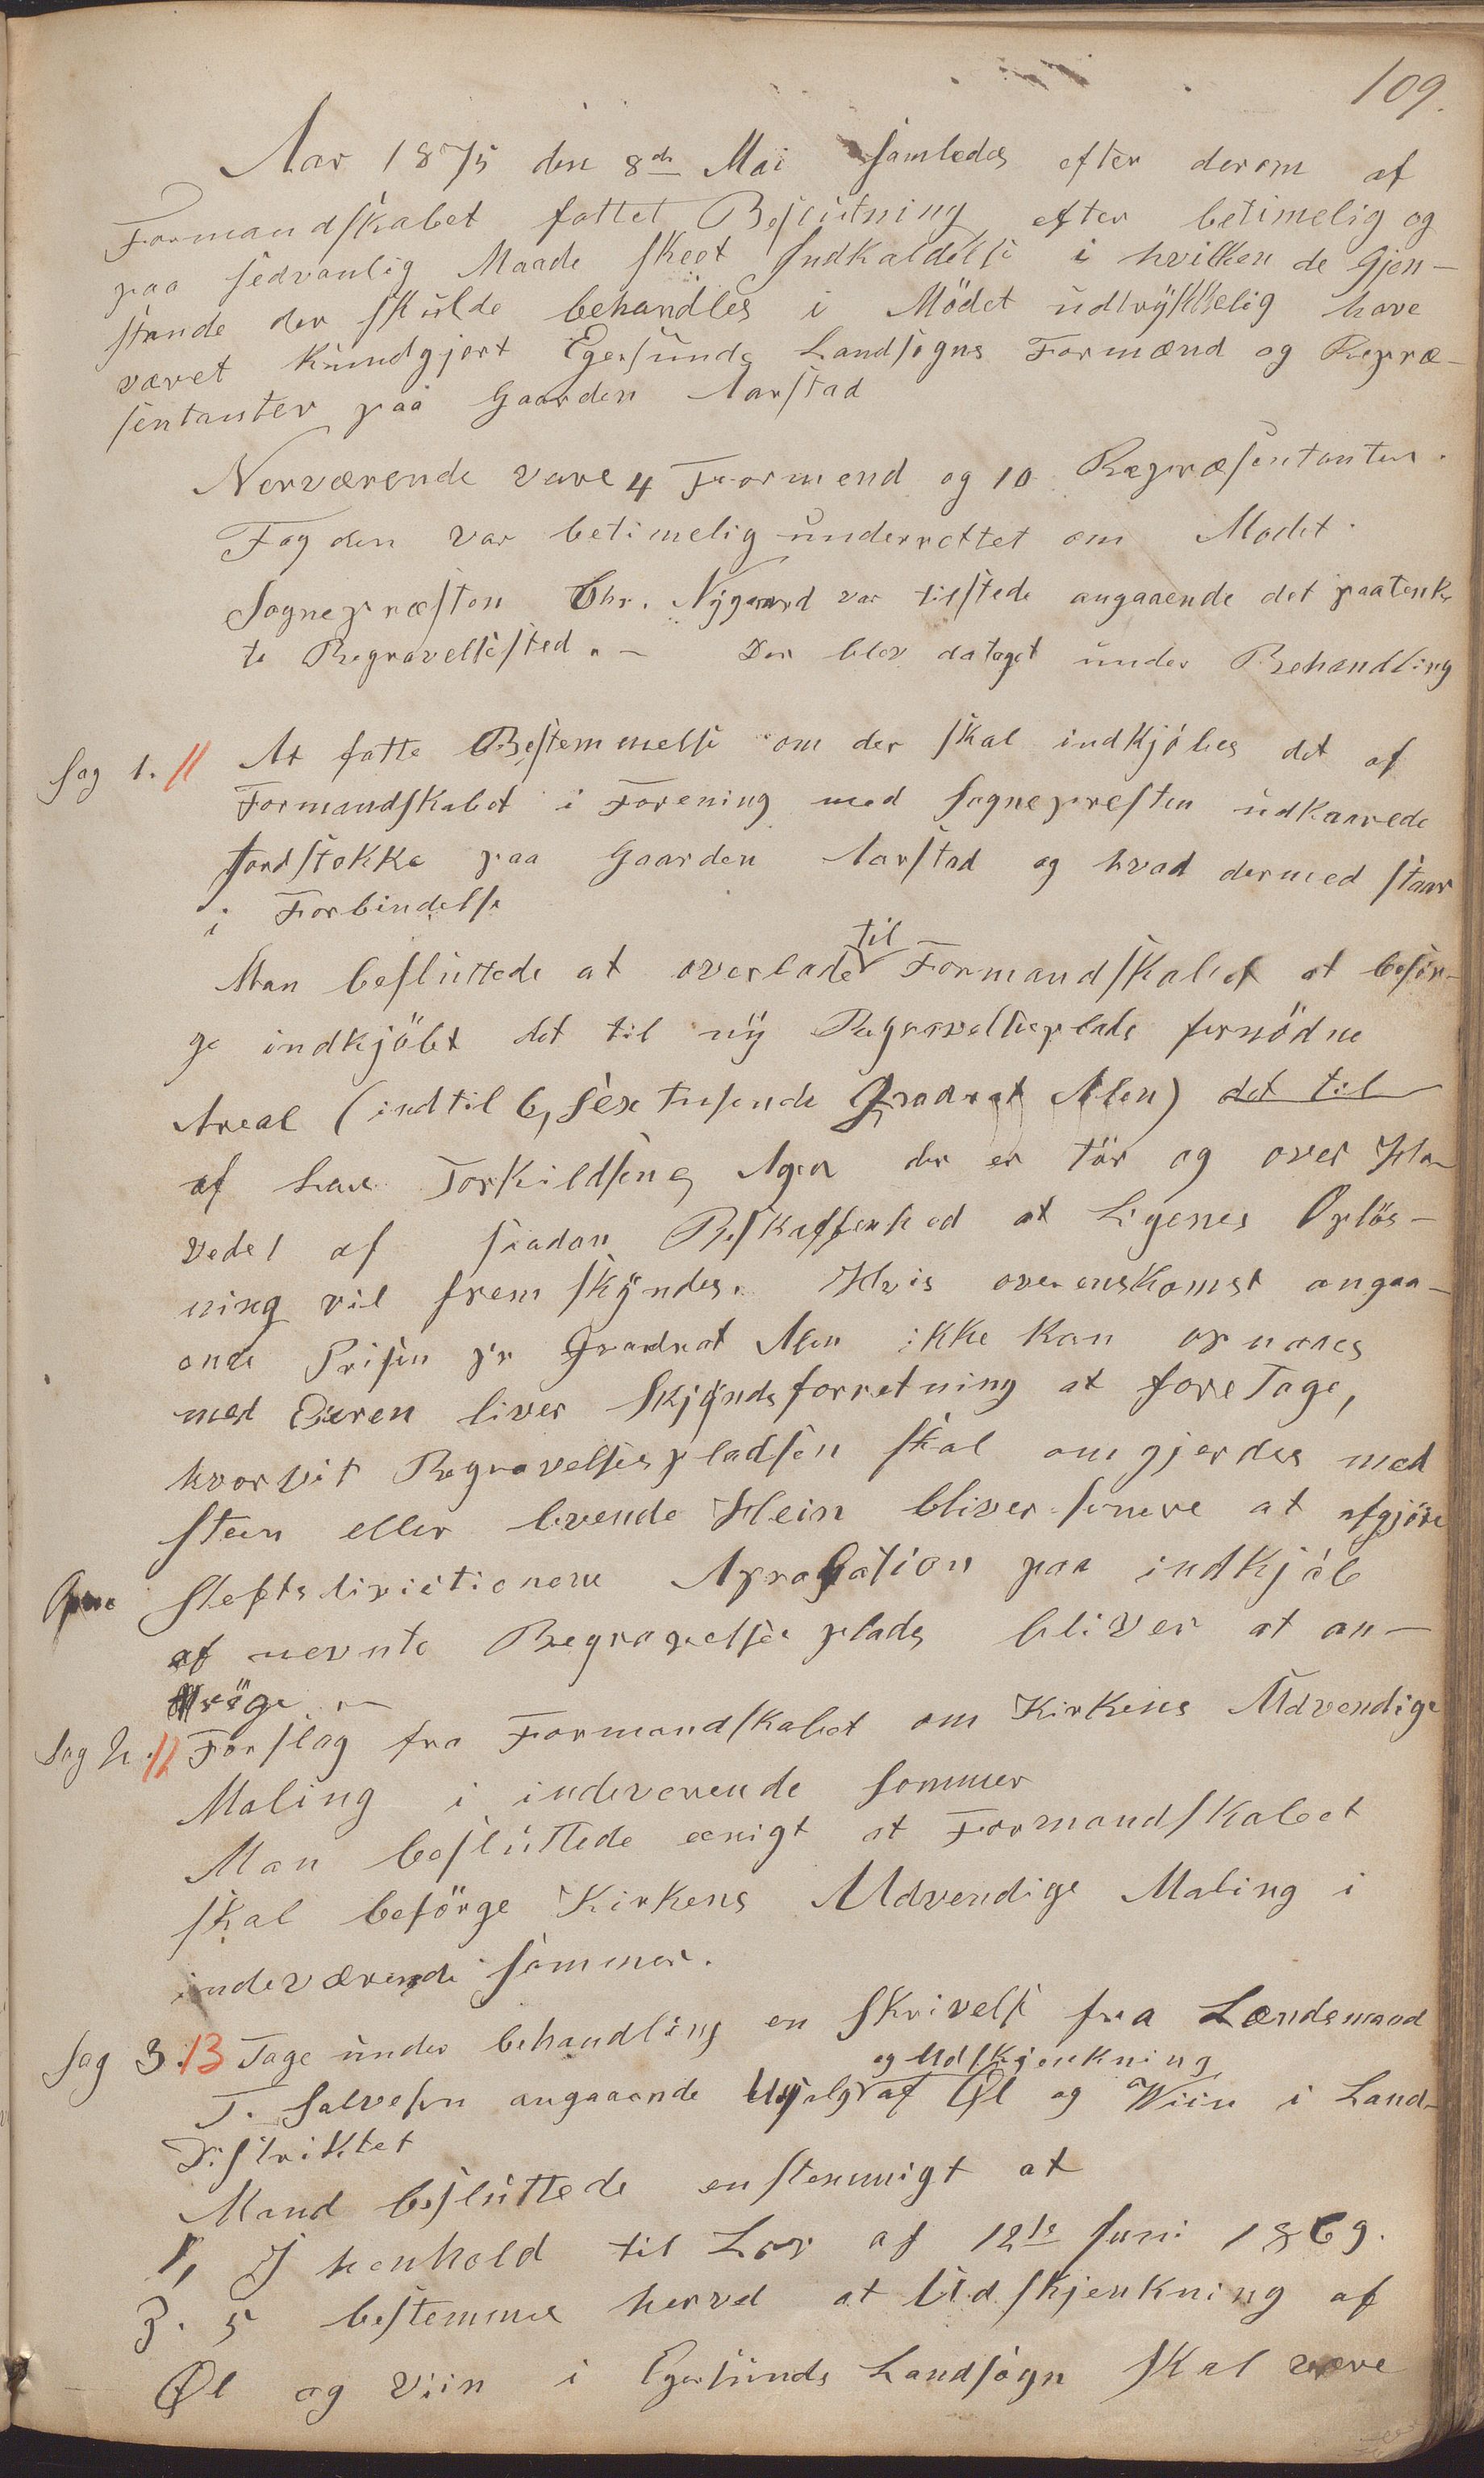 109.
Aar 1875 den 8de Mai samledes efter derom af
Formandskabet fattet Beslutning efter betimelig og
paa sedvanlig Maade skeet Indkaldelse i hvilken de Gjen-
stande der skulde behandles i Mödet udtrykkelig have
været kundgjort Egersunds Landsogns Formænd og Repræ-
sentanter paa Gaarden Aarstad
Nerværende vare 4 Formend og 10 Repræsentanter.
Fogden var betimelig underrettet om Modet.
Sognepræsten Chr. Nygaard var tilstede angaaende det paatenk-
te Begravelsested. - Der blev da taget under Behandling
Sag 1. // At fatte Bestemmelse om der skal indkjöbes det af
Formandskabet i Forening med Sognepresten udkaarede
Jordstökke paa Gaarden Aarstad og hvad dermed staar
i Forbindelse
Man besluttede at overlade til Formandskabet at besör-
ge indkjöbt det til ny Begravelseplads fornödne
Areal (indtil 6, sex tusende Qvadrat Alen) det til
af Lars Torkildsens Ager der er tör og over Ho-
vedet af saadan Beskaffenhed at Ligenes Oplös-
ning vil fremskyndes. Hvis overenskomst angaa-
ende Prisen pr Qvadrat Alen ikke kan opnaaes
med Eieren bliver Skjöndsforretning at foretage,
hvorvit Begravelsespladsen skal omgjerdes med
Steen eller levende Hein bliver senere at afgjöre
Stiftsdirectionens Aprobation paa indkjöb
af nevnte Begravelses plads bliver at an-
dräge. -
Sag 2. // Forslag fra Formandskabet om Kirkens Udvendige
Maling i indeverende Sommer
Man besluttede eenigt at Formandskabet
skal besörge Kirkens Udvendige Maling i
indeværende Sommer.
Sag 3. 13 Tage under behandling en Skrivelse fra Lændsmand
og Udskjenkning
T. Salvesen angaaende Udsalg af Øl og Viin i Land-
Distriktet
Mand besluttede enstemmigt at
1, I henhold til Lov af 12te Juni 1869.
§. 5 bestemmes herved at Udskjenkning af
Øl og Viin i Egersunds Landsogn skal være